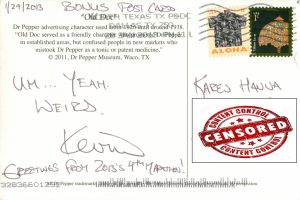 1/29/2013 BONUS POST CARD
"Old Doc"
TEXAS TX PSDC
Dr Pepper advertising character used from
"Old Doc served as a friendly character
in established areas, but confused people in new markets who
mistook Dr Pepper as a tonic or patent medicine."
© 2011, Dr Pepper Museum, Waco, TX
ALOHA
UM... YEAH.
WEIRD.
Kevin
GREETINGS FROM 2013'S 4TH MARATHON!
KAREN HANNA
CONTENT CONTROL
CENSORED
CONTENT CONTROL
Dr Pepper trademark